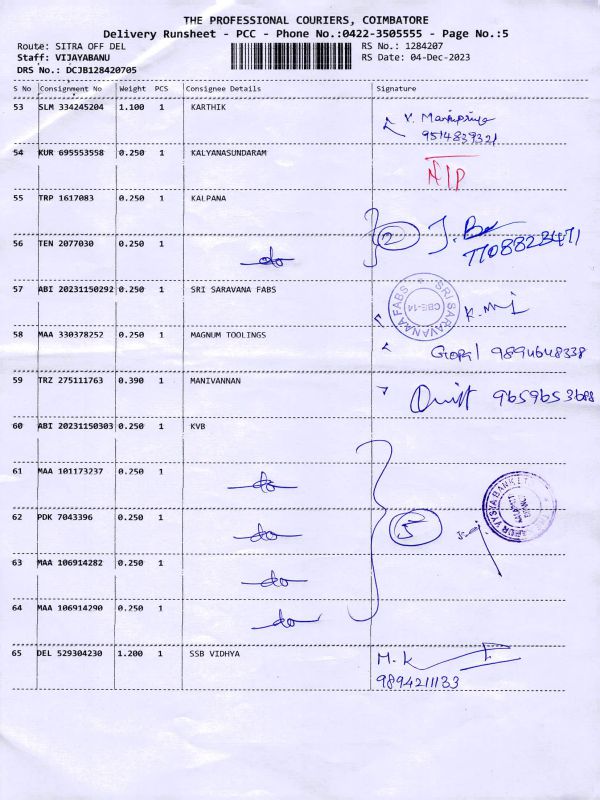 THE PROFESSIONAL COURIERS, COIMBATORE
Delivery Runsheet - PCC - Phone No.:0422-3505555 - Page No.:5
Route: SITRA OFF DEL
RS No.: 1284207
Staff: VIJAYABANU
RS Date: 04-Dec-2023
DRS No.: DCJB128420705
S No Consignment No Weight PCS Consignee Details Signature
53 SLM 334245204 1.100 1 KARTHIK
9514839321
54 KUR 695553558 0.250 1 KALYANASUNDARAM
55 TRP 1617083 0.250 1 KALPANA
2
7708823471
56 TEN 2077030 0.250 1 do
57 ABI 20231150292 0.250 1 SRI SARAVANA FABS
SRI SARAVANAA FABS
CBE-14
58 MAA 330378252 0.250 1 MAGNUM TOOLINGS
Gopal 9894648338
59 TRZ 275111763 0.390 1 MANIVANNAN
60 ABI 20231150303 0.250 1 KVB
61 MAA 101173237 0.250 1 do
62 PDK 7043396 0.250 1 do
5
63 MAA 106914282 0.250 1 do
64 MAA 106914290 0.250 1 do
65 DEL 529304230 1.200 1 SSB VIDHYA
M.K
9894211133